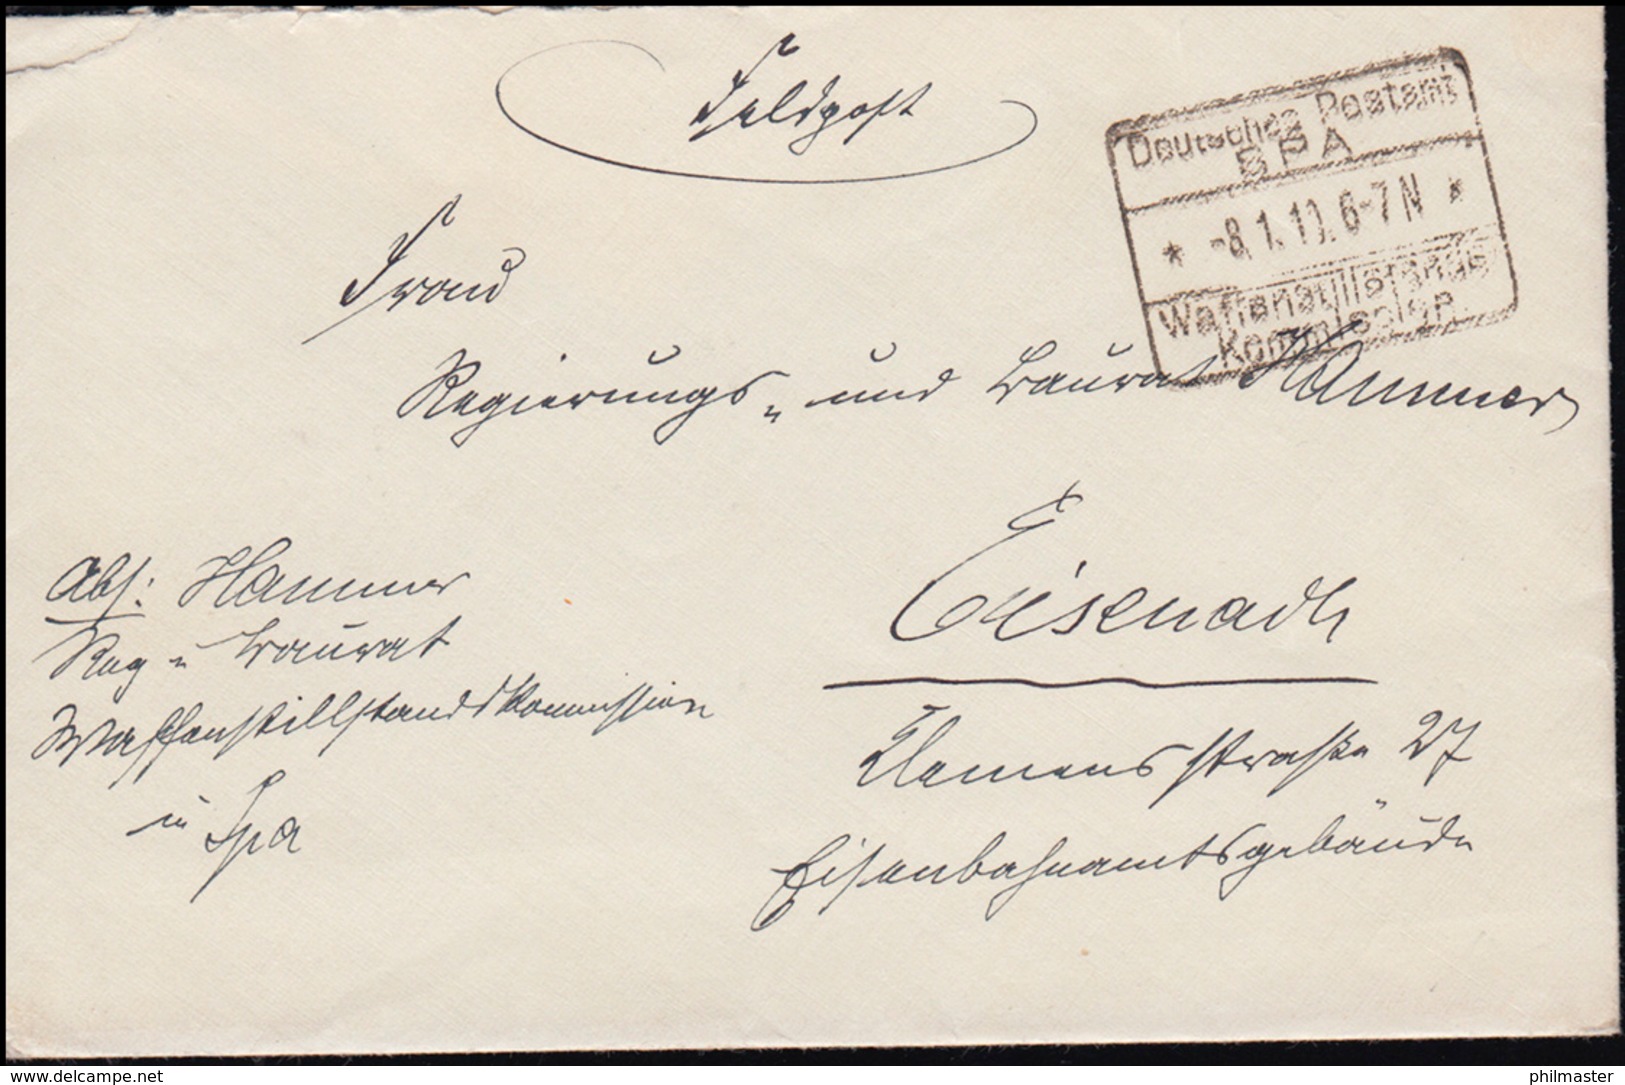 Feldpost
Deutsches Postamt
SPA
* -8.1.19. 6-7 N *
Waffenstillstands
Kommission.
Frau
Regierungs- und Baurat Hammer
Eisenach
Clemensstraße 27
Eisenbahnamtsgebäude
Abs: Hammer
Reg u Baurat
Waffenstillstandskommission
in Spa
www.delcampe.net
philmaster